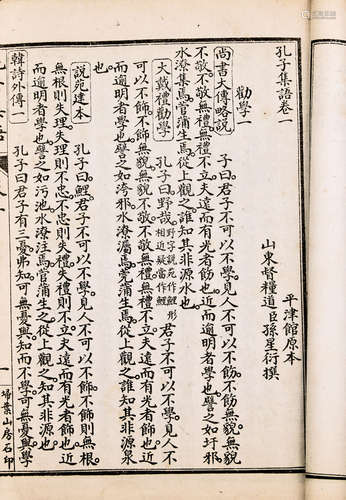 孔子集語卷一
平津館原本
山東督糧道臣孫星衍撰
勸學一
尚書大傳略說 子曰君子不可以不學見人不可以不飭不飭無貌無貌
不敬不敬無禮無禮不立夫遠而有光者飭也近而逾明者學也譬之如圩邪
水潦集焉菅蒲生焉從上觀之誰知其非源水也
大戴禮勸學 孔子曰野哉野字說苑作鯉形相近疑當作鯉君子不可以不學見人不
可以不飾不飾無貌無貌不敬不敬無禮無禮不立夫遠而有光者飾也近
而逾明者學也譬之如洿邪水潦灟焉莞蒲生焉從上觀之誰知其非源泉
也
說苑建本 孔子曰鯉君子不可以不學見人不可以不飾不飾則無根
無根則失理失理則不忠不忠則失禮失禮則不立夫遠而有光者飾也近
而逾明者學也譬之如污池水潦注焉菅蒲生之從上觀之知其非源也
韓詩外傳一 孔子曰君子有三憂弗知可無憂與知而不學可無憂與學
一
掃葉山房石印